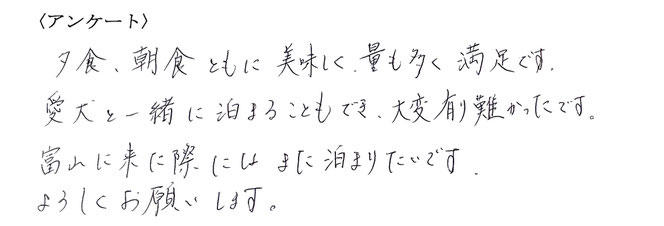 〈アンケート〉
夕食、朝食ともに美味しく、量も多く満足です。
愛犬と一緒に泊まることもでき、大変有難かったです。
富山に来た際にはまた泊まりたいです.
よろしくお願いします。